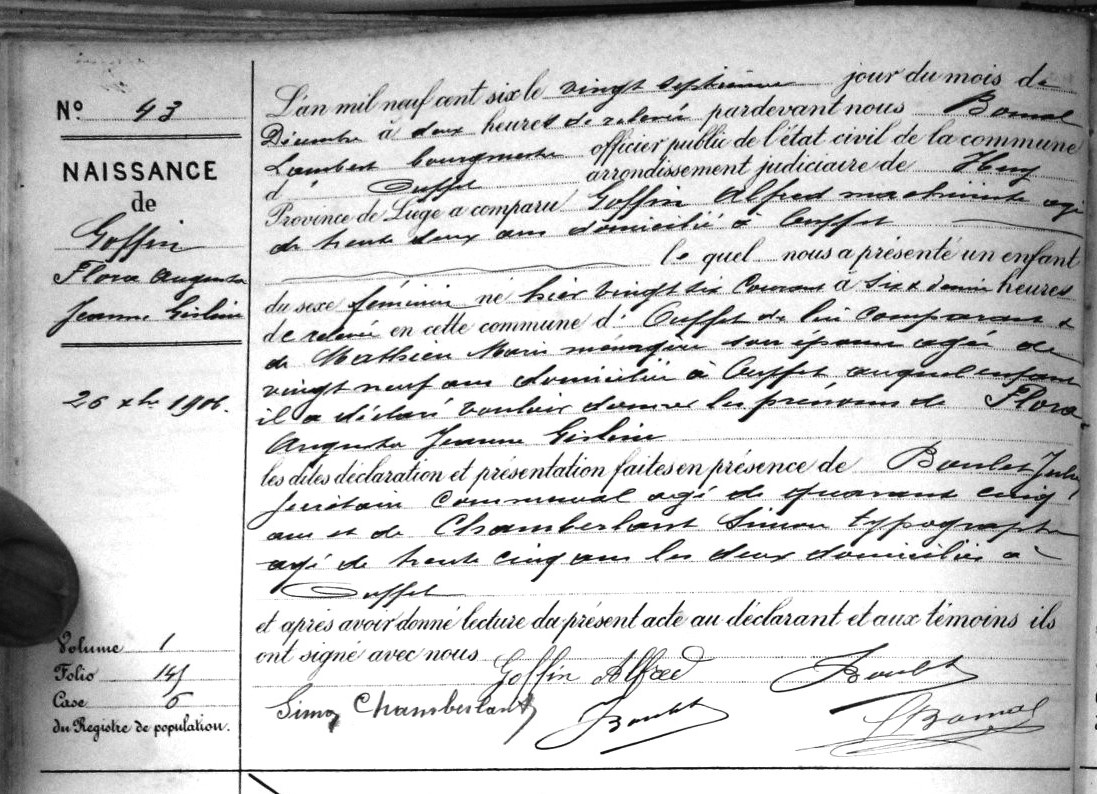 Nº 43
NAISSANCE
de
Goffin
Flora Augusta
Jeanne Gisline
26 xbre 1906.
Volume 1
Folio
Case 6
du Registre de population.
L'an mil neuf cent six le vingt septième jour du mois de
Décembre à deux heures de relevée pardevant nous Bomal
Lambert bourgmestre officier public de l'état civil de la commune
d' Ouffet arrondissement judiciaire de Huy
Province de Liège a comparu Goffin Alfred machiniste agé
de trente deux ans domicilié à Ouffet
le quel nous a présenté un enfant
du sexe féminin né hier vingt six Courant à six & demie heures
de relevée en cette commune d' Ouffet de lui comparant &
de Mathieu Marie ménagère son épouse agée de
vingt neuf ans domiciliée à Ouffet auquel enfant
il a déclaré vouloir donner les prénoms de Flora
Augusta Jeanne Gisline
les dites déclaration et présentation faites en présence de Boulet Jules
secrétaire communal agé de quarante cinq
ans et de Chamberlant Simon typographe
agé de trente cinq ans les deux domiciliés à
Ouffet
et après avoir donné lecture du présent acte au déclarant et aux témoins ils
ont signé avec nous Goffin Alfred JBoulet
Simon Chamberlant JBoulet LBomal